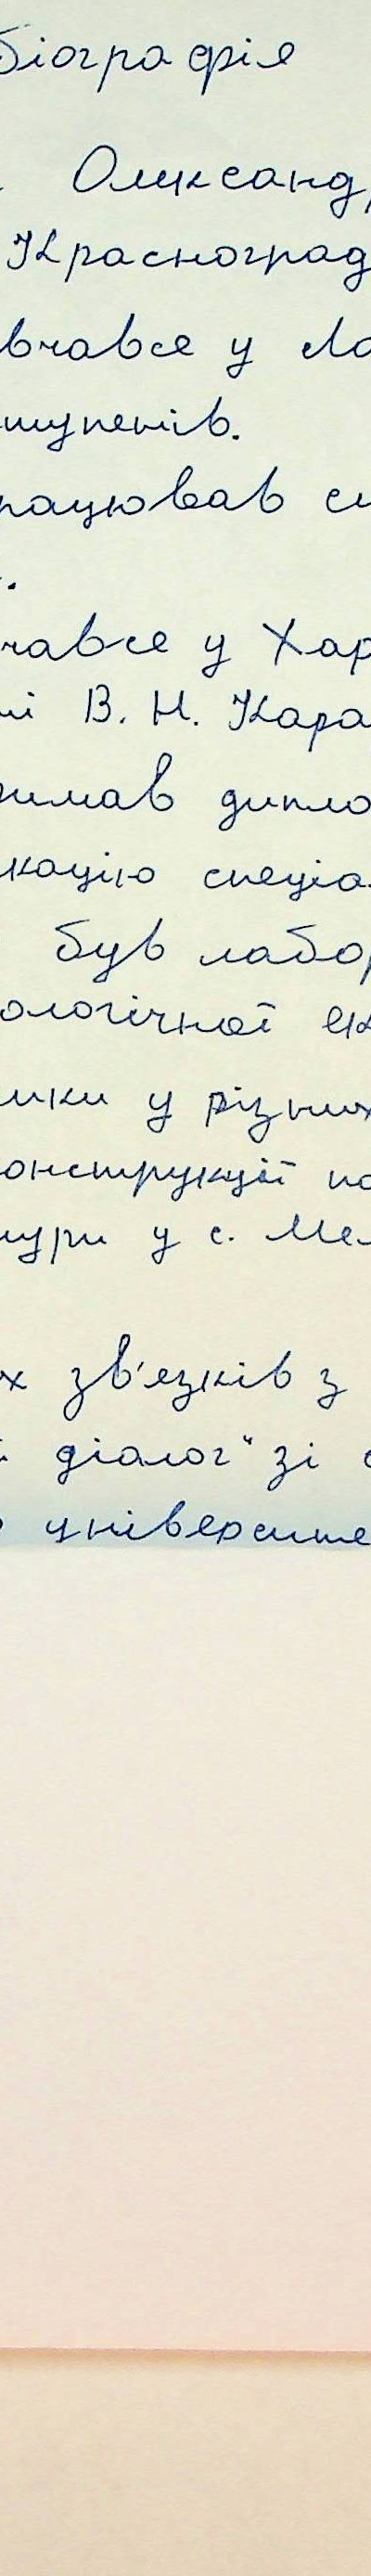 біографія
Олександ
Красноград
вчався у Ло
тупенів.
рацював
чався у Хар
і В. Н. Кара
римав дипло
кацію спеціа
був лабор
ологічної ек
ики у різних
онструкції по
тури у с. Ме
х зв'язків з
діалог" зі с
університе